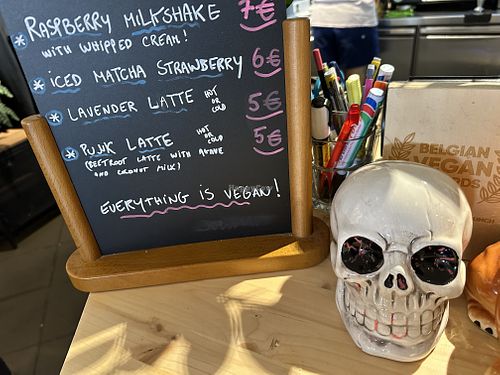 RASPBERRY MILKSHAKE 7€
WITH WHIPPED CREAM!
ICED MATCHA STRAWBERRY 6€
LAVENDER LATTE HOT OR COLD 5€
PUNK LATTE HOT OR COLD 5€
(BEETROOT LATTE WITH AGAVE
AND COCONUT MILK)
EVERYTHING IS VEGAN!
BELGIAN
VEGAN